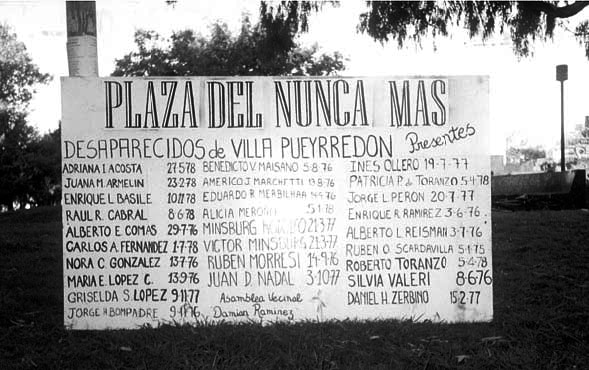 PLAZA DEL NUNCA MAS
DESAPARECIDOS de VILLA PUEYRREDON Presentes
ADRIANA I. ACOSTA 27·5·78
JUANA M. ARMELIN 23·2·78
ENRIQUE L. BASILE 10·11·78
RAUL R. CABRAL 8·6·78
ALBERTO E. COMAS 29·7·76
CARLOS A. FERNANDEZ 1·7·78
NORA C. GONZALEZ 13·7·76
MARIA E. LOPEZ C. 13·9·76
GRISELDA S. LOPEZ 9·11·77
JORGE H BOMPADRE 9·11·76
BENEDICTO V. MAISANO 5·8·76
AMERICO J. MARCHETTI 13·8·76
EDUARDO R MERBILHAA 14·9·76
ALICIA 5·1·78
MINSBURG 21·3·77
VICTOR MINSBURG 21·3·77
RUBEN MORRESI 14·9·76
JUAN D. NADAL 3·10·77
Asamblea Vecinal
Damian Ramirez
INES OLLERO 19·7·77
PATRICIA P. de TORANZO 5·4·78
JORGE L. PERON 20·7·77
ENRIQUE R. RAMIREZ 3·6·76.
ALBERTO L. REISMAN 3·7·76
RUBEN O. SCARDAVILLA 5·1·75
ROBERTO TORANZO 5·4·78
SILVIA VALERI 8·6·76
DANIEL H. ZERBINO 15·2·77